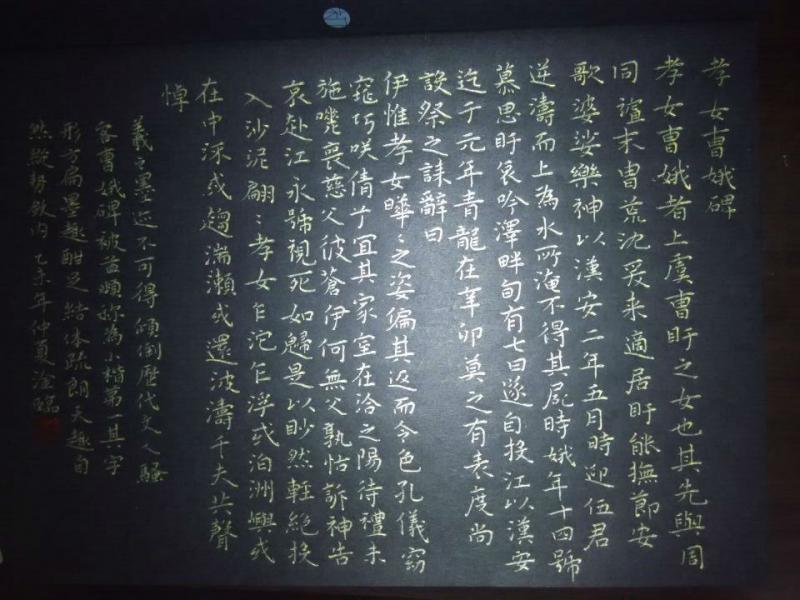 孝女曹娥碑
孝女曹娥者上虞曹盱之女也其先與周
同祖末胄荒沈爰来適居盱能撫節安
歌婆娑樂神以漢安二年五月時迎伍君
逆濤而上為水所淹不得其屍時娥年十四號
慕思盱哀吟澤畔旬有七日遂自投江以漢安
迄于元年青龍在辛卯莫之有表度尚
設祭之誄辭曰
伊惟孝女曄〻之姿偏其返而令色孔儀窈
窕巧咲倩兮宜其家室在洽之陽待禮未
施嗟喪慈父彼蒼伊何無父孰怙訴神告
哀赴江永號視死如歸是以眇然輕絶投
入沙泥翩〻孝女乍沉乍浮或泊洲嶼或
在中流或趨湍瀨或還波濤千夫共聲
悼
羲之墨迹不可得傾倒歷代文人騷
客曹娥碑被益頌称為小楷第一其字
形方扁墨趣酣足結体疏朗天趣自
然縱勢斂内乙未年仲夏 臨